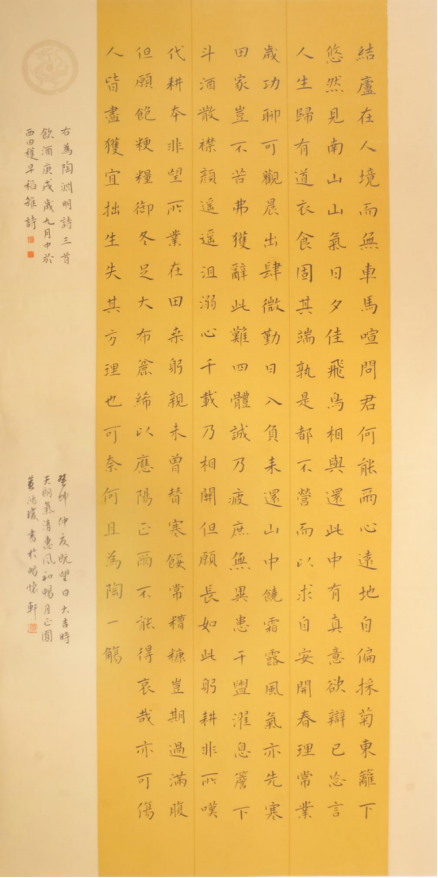 結廬在人境而無車馬喧問君何能爾心遠地自偏採菊東籬下
悠然見南山山氣日夕佳飛鳥相與還此中有真意欲辯已忘言
人生歸有道衣食固其端孰是都不營而以求自安開春理常業
歲功聊可觀晨出肆微勤日入負耒還山中饒霜露風氣亦先寒
田家豈不苦弗獲辭此難四體誠乃疲庶無異患干盥濯息簷下
斗酒散襟顏遙遙沮溺心千載乃相關但願長如此躬耕非所嘆
代耕本非望所業在田桑躬親未曾替寒餒常糟糠豈期過滿腹
但願飽粳糧御冬足大布麄絺以應陽正爾不能得哀哉亦可傷
人皆盡獲宜拙生失其方理也可奈何且為陶一觴
右為陶淵明詩三首
飲酒庚戌歲九月中於
西田穫早稻雜詩
癸卯仲夏既望日大吉時
天朗氣清惠風和暢月正圓
書於暢懷軒